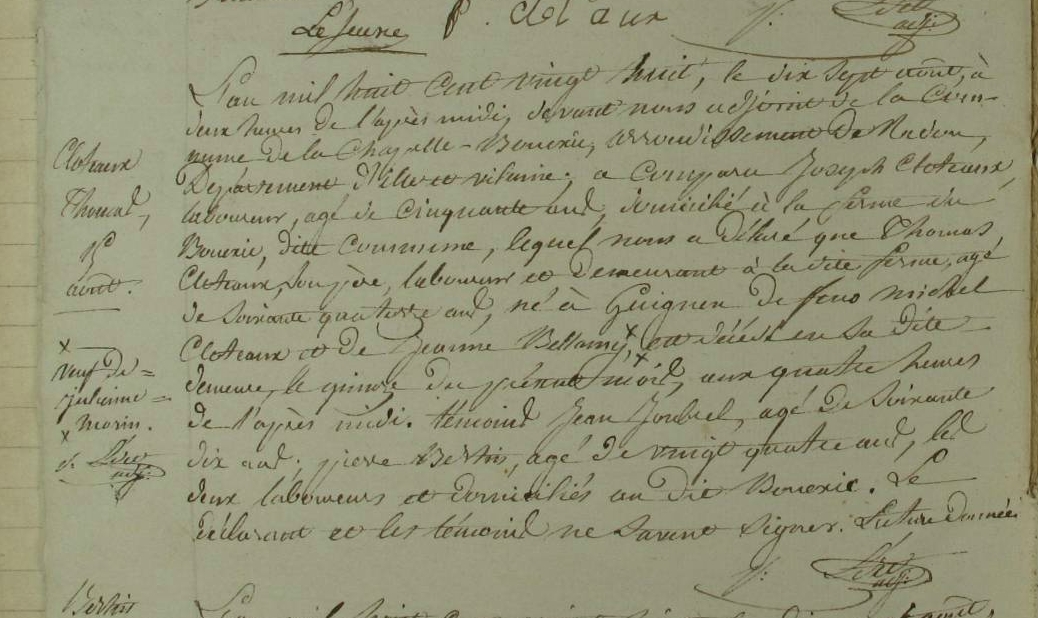 Le Jeune P. Clotaux
Cloteaux
Thomas,
15
août.
L'an mil huit cent vingt huit, le dix sept août, à
deux heures de l'après midi, devant nous adjoint de la Com-
mune de la Chapelle-Bouëxic, arrondissement de Redon,
Département d'ille et vilaine; a comparu Joseph Cloteaux,
laboureur, agé de cinquante ans, domicilié à la ferme du
Bouexic, dite commune, lequel nous a déclaré que Thomas
Cloteaux, son père, laboureur et demeurant à la dite ferme, agé
de soixante quatorze ans, né à Guignen de feus michel
Cloteaux et de Jeanne Bellamy,x est décédé en sa dite
demeure, le quinze du présent mois,x aux quatre heures
de l'après midi. témoins Jean Joubrel, agé de soixante
dix ans; pierre Bertin, agé de vingt quatre ans, les
deux laboureurs et domiciliés au dit Bouexic. Le
déclarant et les témoins ne savent signer. Lecture donnée
x
veuf de =
julienne =
morin.
x
adj:
adj:
Bertin
L'an mil huit cent août,